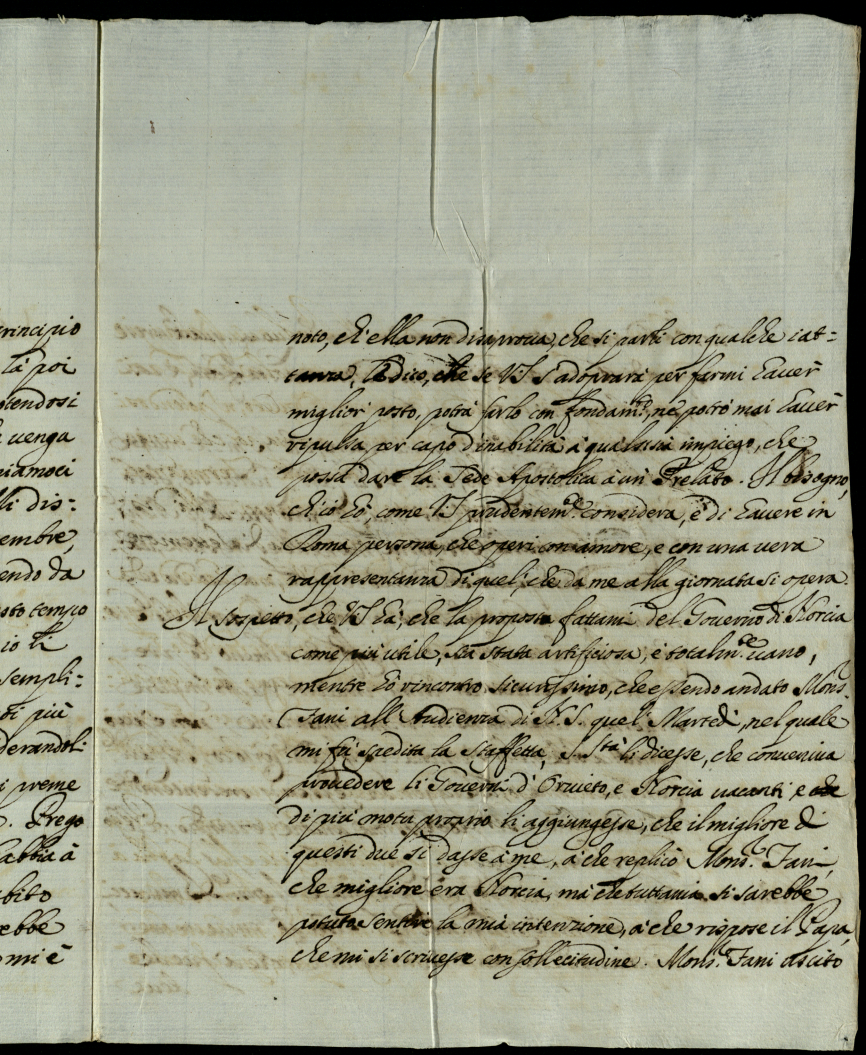 rincipio
la poi
otendosi
e uenga
niamoci
lli dis=
embre,
endo da
osto tempo
io li
sempli=
ti più
derandoli
i preme
. Prego
abbia à
bito
ebbe
mi è
noto, ch'ella non disaprova, che si parli con qualche iat=
tanza, Le dico, che se VS s'adoprarà per farmi hauer
miglior posto, potrà farlo con fondam.to, nè potrò mai hauer
ripulsa per capo d'inabilità à qualsisia impiego, che
possa dare la Sede Apostolica à un Prelato. Il bisogno,
ch'io hò, come VS prudentem.te considera, è di hauere in
Roma persona, che operi con amore, e con una uera
rappresentanza di quel, che da me alla giornata si opera.
Il sospetto, che VS hà, che la proposta fattami del Gouerno di Norcia
come più utile, sia stata artificiosa, è totalm.te uano,
mentre hò rincontro sicurissimo, che essendo andato Mons.r
Fani all'Audienza di N.S. quel Martedì, nel quale
mi fù spedita la Staffetta, S. Stà li dicesse, che conueniua
prouedere li Gouerni d'Oruieto, e Norcia uacanti, e che
di più motu proprio li aggiungesse, che il migliore di
questi due si dasse à me, à che replicò Mons.r Fani,
che migliore era Norcia, mà che tuttauia si sarebbe
potuta sentire la mia intenzione, à che rispose il Papa,
che mi si scriuesse con sollecitudine. Mons.r Fani uscito